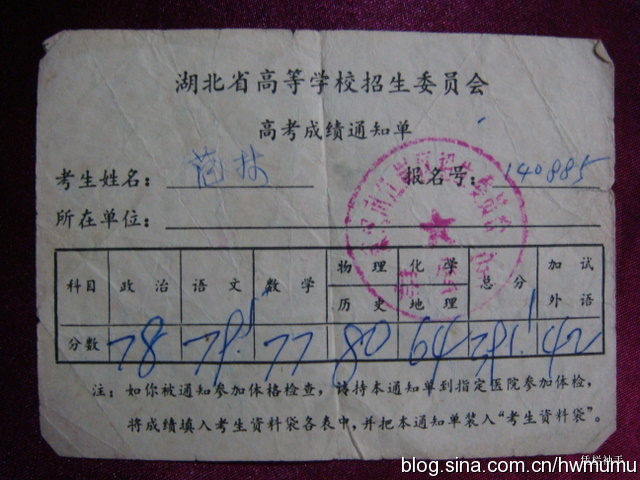 湖北省高等学校招生委员会
高考成绩通知单
考生姓名：范林 报名号：140885
所在单位：
科目 政治 语文 数学 物理 化学 总分 加试
历史 地理 外语
分数 78 79.1 77 80 64 42
注：如你被通知参加体格检查，请持本通知单到指定医院参加体检，
将成绩填入考生资料袋各表中，并把本通知单装入“考生资料袋”。
blog.sina.com.cn/hwmumu